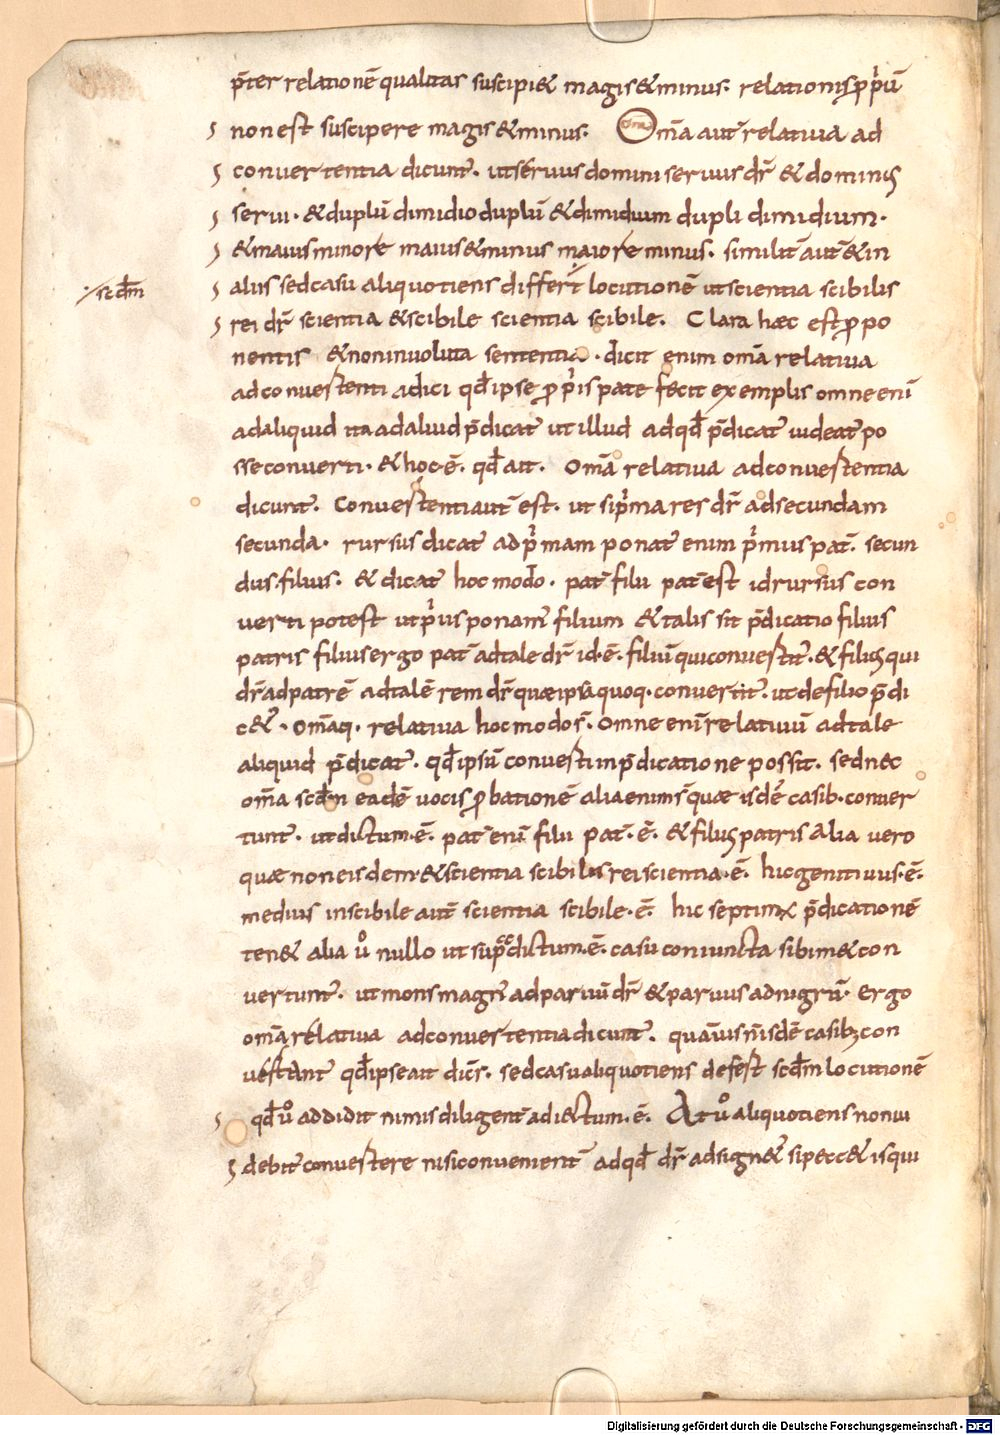 p̄ter relationē qualitas suscipi& magis & minus. relationis ꝓpriū
non est suscipere magis & minus. Om̄a aut̄ relativa ad
convertentia dicunt̄. ut servus domini servus dr̄ & dominus
servi. & duplū dimidio duplū & dimidium dupli dimidium.
& maius minore maius & minus maiore minus. similit̄ aut̄ & in
aliis sed casu aliquotiens differt ⁒ locutionē ut scientia scibilis
⁒ scdm̄
rei dr̄ scientia & scibile scientia scibile. Clara haec est ꝓpo
nentis & non involuta sententia. dicit enim om̄a relativa
ad convertentia dici qd̄ ipse ꝓpriis patefecit exemplis omne enī
ad aliquid ita ad aliud p̄dicat̄ ut illud ad qd̄ p̄dicat̄ videat̄ po
sse converti. & hoc ē. qd̄ ait. Om̄a relativa ad convertentia
dicunt̄. Converti aut̄ est. ut si prima res dr̄ ad secundam
secunda. rursus dicat̄ ad primam ponat̄ enim primus pat̄. secun
dus filius. & dicat̄ hoc modo. pat̄ filii pat̄ est id rursus con
verti potest ut prius ponam̄ filium & talis sit p̄dicatio filius
patris filius ergo pat̄ ad tale dr̄ id. ē. filiū qui convertit̄. & filius qui
dr̄ ad patrē ad talē rem dr̄ quae ipsa quoq. convertit̄. ut de filio p̄di
c&̄. Om̄aq. relativa hoc modo s̄. Omne enī relativū ad tale
aliquid p̄dicat̄. qd̄ ipsū converti in p̄dicatione possit. sed nec
om̄a scdm̄ eadē vocis ꝓbationē alia enim s̄ quae isdē casib. conver
tunt̄. ut dictum. ē. pat̄ enī filii pat̄. ē. & filius patris alia vero
quae non eisdem. & scientia scibilis rei scientia. ē. hic genitivus. ē.
medius in scibile aut̄ scientia scibile. ē. hic septimus p̄dicationē
ten& alia v̊ nullo ut supra dictum. ē. casu coniuncta sibim& con
vertunt̄. ut mons magn̄ ad parvū dr̄ & parvus ad nigrū. Ergo
om̄a relativa ad convertentia dicunt̄. quāvis n̄ isdē casib; con
vertant̄ qd̄ ipse ait dicēs. sed casu aliquotiens defest scdm̄ locutionē
qd̄ v̊ addidit nimis diligent̄ adiectum. ē. At v̊ aliquotiens non vi
debit̄ convertere nisi convenient̄ ad qd̄ dr̄ adsign&̄ si pecc& is qui